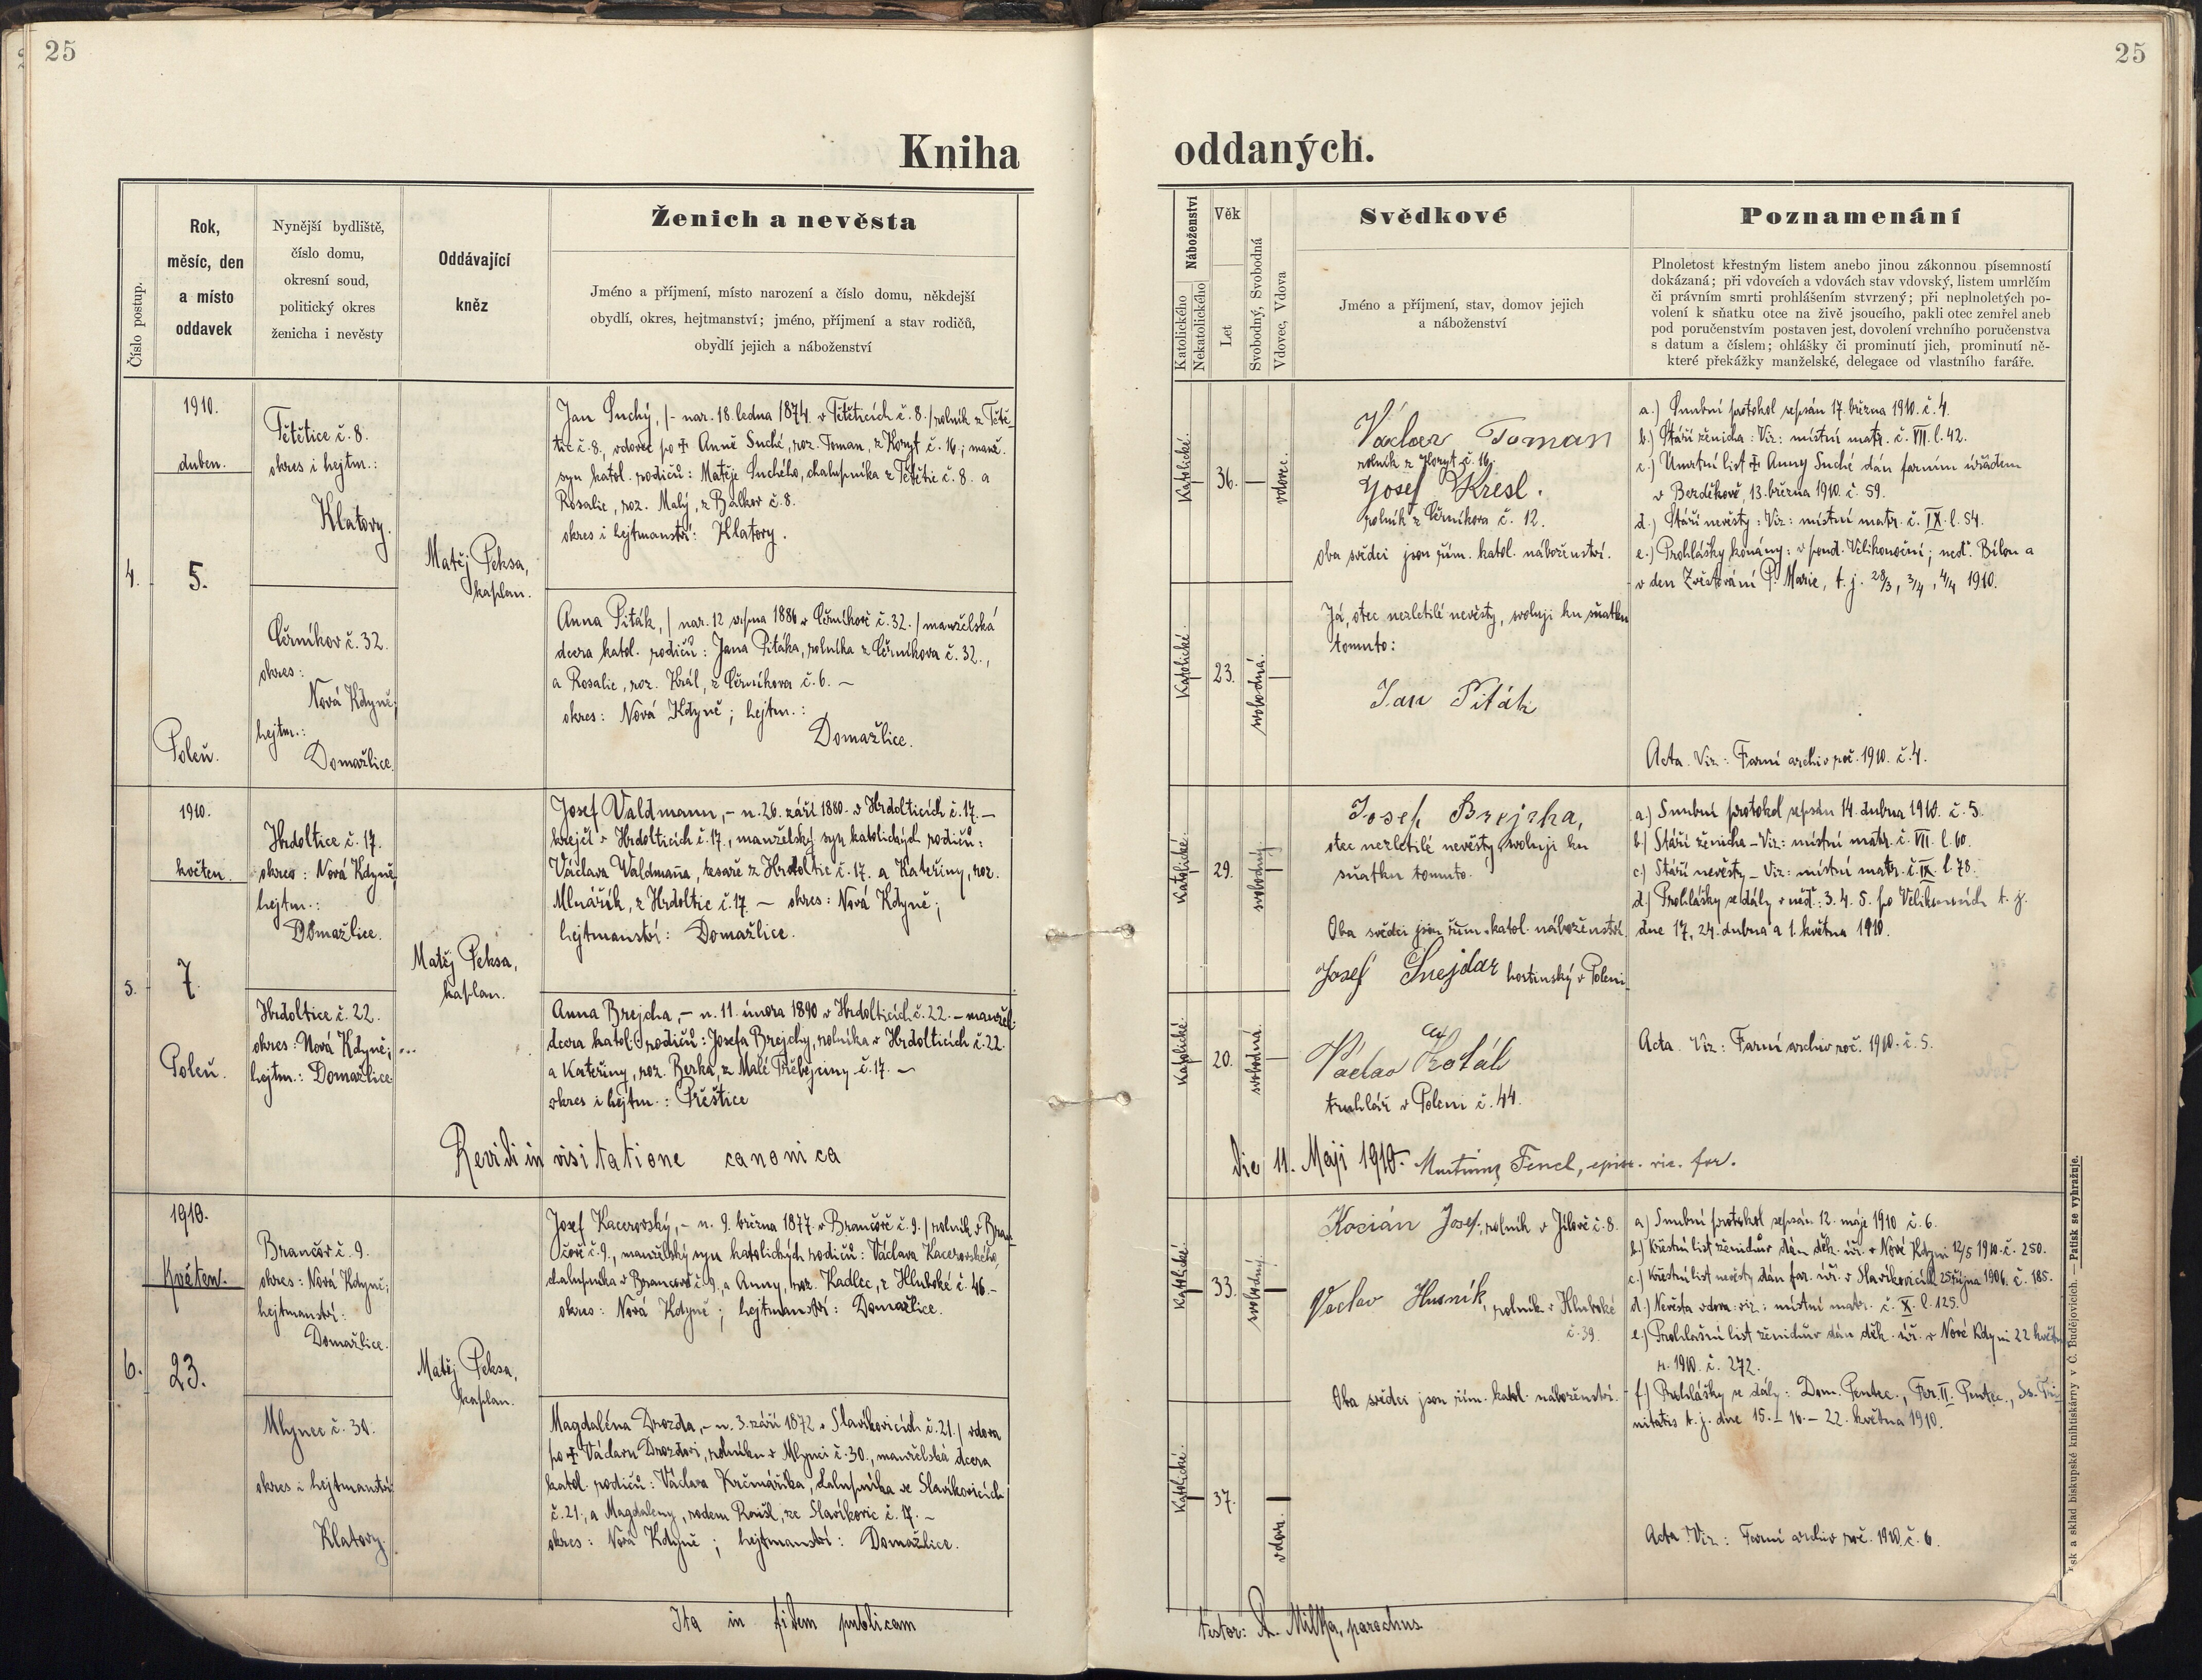 25
25
Kniha
oddaných.
Číslo postup.
Rok,
měsíc, den
a místo
oddavek
Nynější bydliště,
číslo domu,
okresní soud,
politický okres
ženicha i nevěsty
Oddávající
kněz
Ženich a nevěsta
Jméno a příjmení, místo narození a číslo domu, někdejší
obydlí, okres, hejtmanství; jméno, příjmení a stav rodičů,
obydlí jejich a náboženství
Náboženství
Katolického
Nekatolického
Věk
Let
Svobodný, Svobodná
Vdovec, Vdova
Svědkové
Jméno a příjmení, stav, domov jejich
a náboženství
Poznamenání
Plnoletost křestným listem anebo jinou zákonnou písemností
dokázaná; při vdovcích a vdovách stav vdovský, listem umrlčím
či právním smrti prohlášením stvrzený; při neplnoletých po-
volení k sňatku otce na živě jsoucího, pakli otec zemřel aneb
pod poručenstvím postaven jest, dovolení vrchního poručenstva
s datum a číslem; ohlášky či prominutí jich, prominutí ně-
které překážky manželské, delegace od vlastního faráře.
4.
1910.
duben.
5.
Poleň.
Tětětice č. 8.
okres i hejtm.:
Klatovy.
Černíkov č. 32.
okres:
Nová Kdyně;
hejtm.:
Domažlice.
Matěj Peksa,
kaplan.
Jan Suchý, /- nar. 18. ledna 1874 v Tětěticích č. 8. / rolník z Tětě-
tic č. 8, vdovec po ✝ Anně Suché, roz. Toman, z Koryt č. 16; manž.
syn katol. rodičů: Matěje Suchého, chalupníka z Tětětic č. 8. a
Rosalie, roz. Malý, z Balkov č. 8.
okres i hejtmanství: Klatovy.
Anna Piták, / nar. 12 srpna 1886 v Černíkově č. 32. / manželská
dcera katol. rodičů: Jana Pitáka, rolníka z Černíkova č. 32.,
a Rosalie, roz. Král, z Černíkova č. 6. —
okres: Nová Kdyně; hejtm.:
Domažlice.
Katolické.
36.
vdovec.
Katolické.
23.
svobodná.
Václav Toman
rolník z Koryt č. 16.
Josef Kresl.
rolník z Černíkova č. 12.
Oba svědci jsou řím. katol. náboženství.
Já, otec nezletilé nevěsty, svoluji ku sňatku
tomuto:
Jan Piták
a.) Snubní protokol sepsán 17. března 1910. č. 4.
b.) Stáří ženicha: Viz: místní matr. č. VII. l. 42.
c.) Úmrtní list ✝ Anny Suché dán farním úřadem
v Bezděkově, 13. března 1910. č. 59.
d.) Stáří nevěsty: Viz: místní matr. č. IX. l. 54.
e.) Prohlášky konány: v pond. Velikonoční; neď. Bílou a
v den Zvěstování P. Marie, t. j. 28/3, 3/4, 4/4 1910.
Acta. Viz: Farní archiv roč. 1910. č. 4.
5.
1910.
květen.
7.
Poleň.
Hrdoltice č. 17.
okres: Nová Kdyně,
hejtm.:
Domažlice.
Hrdoltice č. 22.
okres: Nová Kdyně;
hejtm.: Domažlice.
Matěj Peksa,
kaplan.
Josef Valdmann, - n. 26. září 1880. v Hrdolticích č. 17. —
krejčí v Hrdolticích č. 17., manželský syn katolických rodičů:
Václava Valdmaňa, tesaře z Hrdoltic č. 17. a Kateřiny, roz.
Mlnářík, z Hrdoltic č. 17. — okres: Nová Kdyně;
hejtmanství: Domažlice.
Anna Brejcha, - n. 11. února 1890 v Hrdolticích č. 22. - manžel.
dcera katol. rodičů: Josefa Brejchy, rolníka v Hrdolticích č. 22.
a Kateřiny, roz. Berka, z Malé č. 17. —
okres i hejtm.: Přeštice
Katolické.
29.
svobodný.
Katolické.
20.
svobodná.
Josef Brejcha,
otec nezletilé nevěsty svoluji ku
sňatku tomuto.
Oba svědci jsou řím. katol. náboženství.
Josef Snejdar hostinský v Poleni
Václav
truhlář v Poleni č. 44.
a.) Snubní protokol sepsán 14. dubna 1910. č. 5.
b.) Stáří ženicha - Viz: místní matr. č. VII. l. 60.
c.) Stáří nevěsty - Viz: místní matr. č. IX. l. 78.
d.) Prohlášky se dály v neď. 3. 4. 5. po Velikonocích t. j.
dne 17., 24. dubna a 1. května 1910.
Acta. Viz: Farní archiv roč. 1910. č. 5.
Revidi in visitatione canonica
die 11. Maji 1910. Martinus Fencl, episc. vic. for.
6.
1910.
Květen.
23.
Brančov č. 9.
okres: Nová Kdyně;
hejtmanství:
Domažlice.
Mlynec č. 30.
okres i hejtmanství:
Klatovy.
Matěj Peksa,
kaplan.
Josef Kacerovský, - n. 9. března 1877. v Brančově č. 9. / rolník v Bran-
čově č. 9., manželský syn katolických rodičů: Václava Kacerovského,
chalupníka v Brančově č. 9., a Anny, roz. Kadlec, z Hluboké č. 46. -
okres: Nová Kdyně; hejtmanství: Domažlice.
Magdaléna Drozda, - n. 3. září 1872 v Slavíkovicích č. 21. / vdova
po ✝ Václavu Drozdovi, rolníku v Mlynci č. 30., manželská dcera
katol. rodičů: Václava Krčmáříka, chalupníka ve Slavíkovicích
č. 21., a Magdaleny, rodem, ze Slavíkovic č. 17. —
okres: Nová Kdyně; hejtmanství: Domažlice.
Katolické.
33.
svobodný.
Katolické.
37.
vdova.
Kocián Josef, rolník v Jílově č. 8.
Vaclav Husník, rolník v Hluboké
č. 39.
Oba svědci jsou řím. katol. náboženství.
a.) Snubní protokol sepsán 12. máje 1910 č. 6.
b.) Křestní list ženichův dán děk. úř. v Nové Kdyni 12/5 1910. č. 250.
c.) Křestní list nevěsty dán far. úř. v Slavíkovicích 25. října 1906. č. 185.
d.) Nevěsta vdova: viz: místní matr. č. X. l. 125.
e.) Prohlašní list ženichův dán děk. úř. v Nové Kdyni 22 květn.
r. 1910. č. 272.
f.) Prohlášky se dály: Dom. Pentec., Fer. II. Pentec., Ss. Tri-
nitatis t. j. dne 15. - 16. - 22. května 1910.
Acta. Viz: Farní archiv roč. 1910. č. 6.
Ita in fidem publicam
testor: Milka, parochus.
a sklad biskupské knihtiskárny v Č. Budějovicích. — Patisk se vyhražuje.